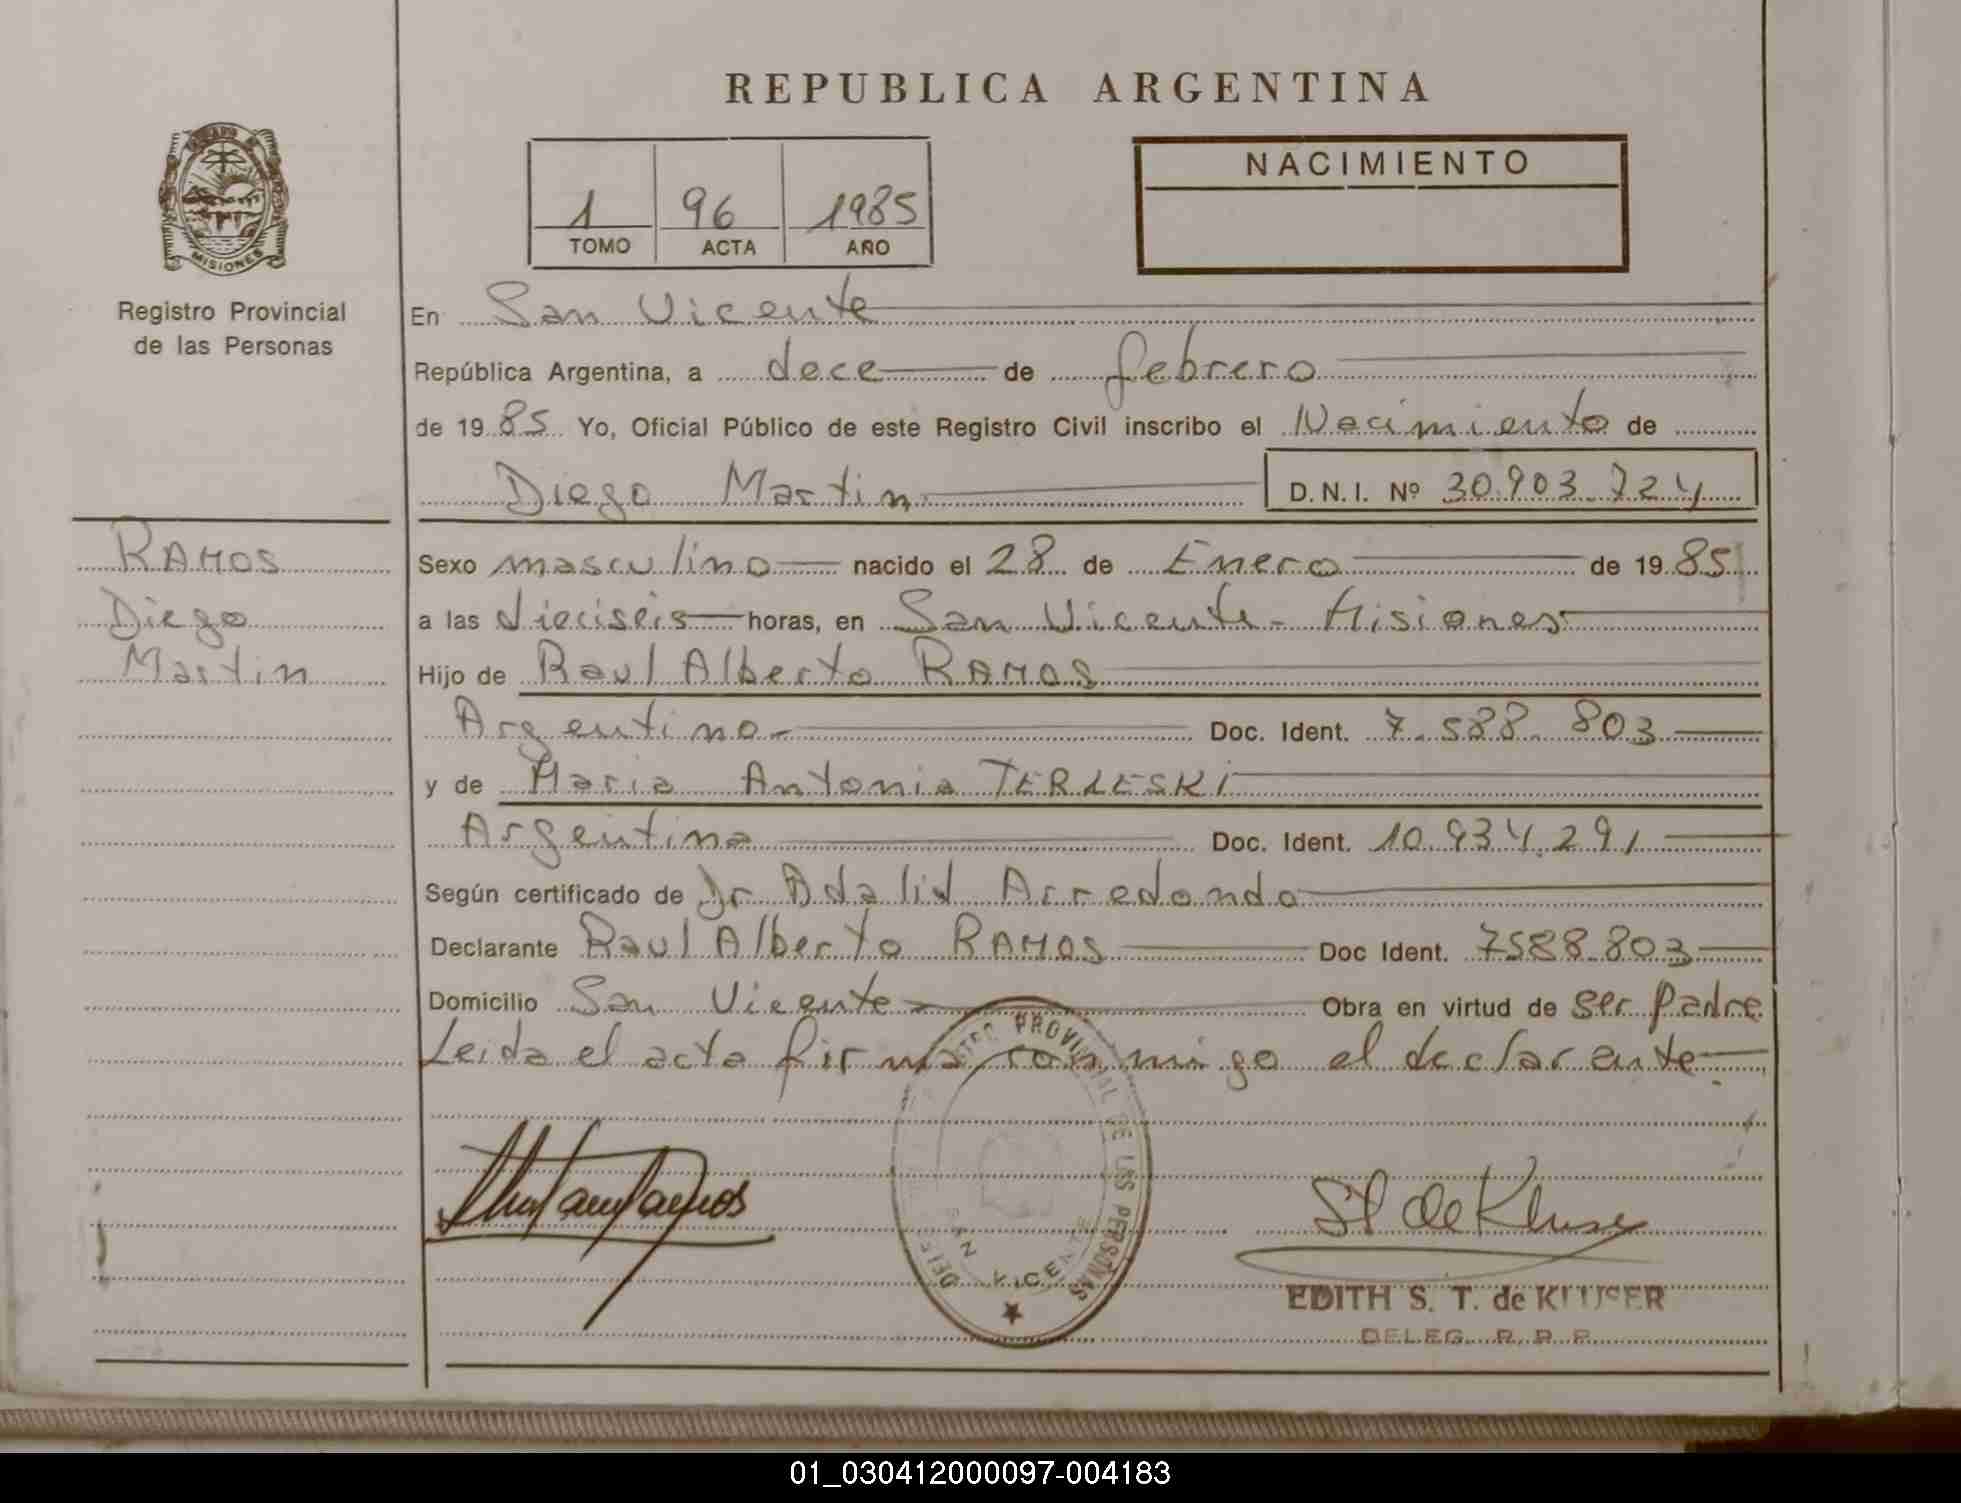 REPUBLICA ARGENTINA
NACIMIENTO
1 96 1985
TOMO ACTA AÑO
MISIONES
Registro Provincial
de las Personas
En San Vicente
República Argentina, a doce de febrero
de 1985 Yo, Oficial Público de este Registro Civil inscribo el Nacimiento de
Diego Martin D.N.I. Nº 30.903.724
RAMOS
Diego
Martin
Sexo masculino nacido el 28 de Enero de 1985
a las dieciseis horas, en San Vicente - Misiones
Hijo de Raul Alberto RAMOS
Argentino Doc. Ident. 7.588.803
y de Maria Antonia TERLESKI
Argentina Doc. Ident. 10.934.291
Según certificado de Dr Adalid Arredondo
Declarante Raul Alberto RAMOS Doc Ident. 7588.803
Domicilio San Vicente Obra en virtud de ser padre
Leida el acta firma conmigo el declarante
PROVINCIAL DE LAS PERSONAS
SAN VICENTE
EDITH S. T. de KLUSER
DELEG. R. P. P.
01_030412000097-004183